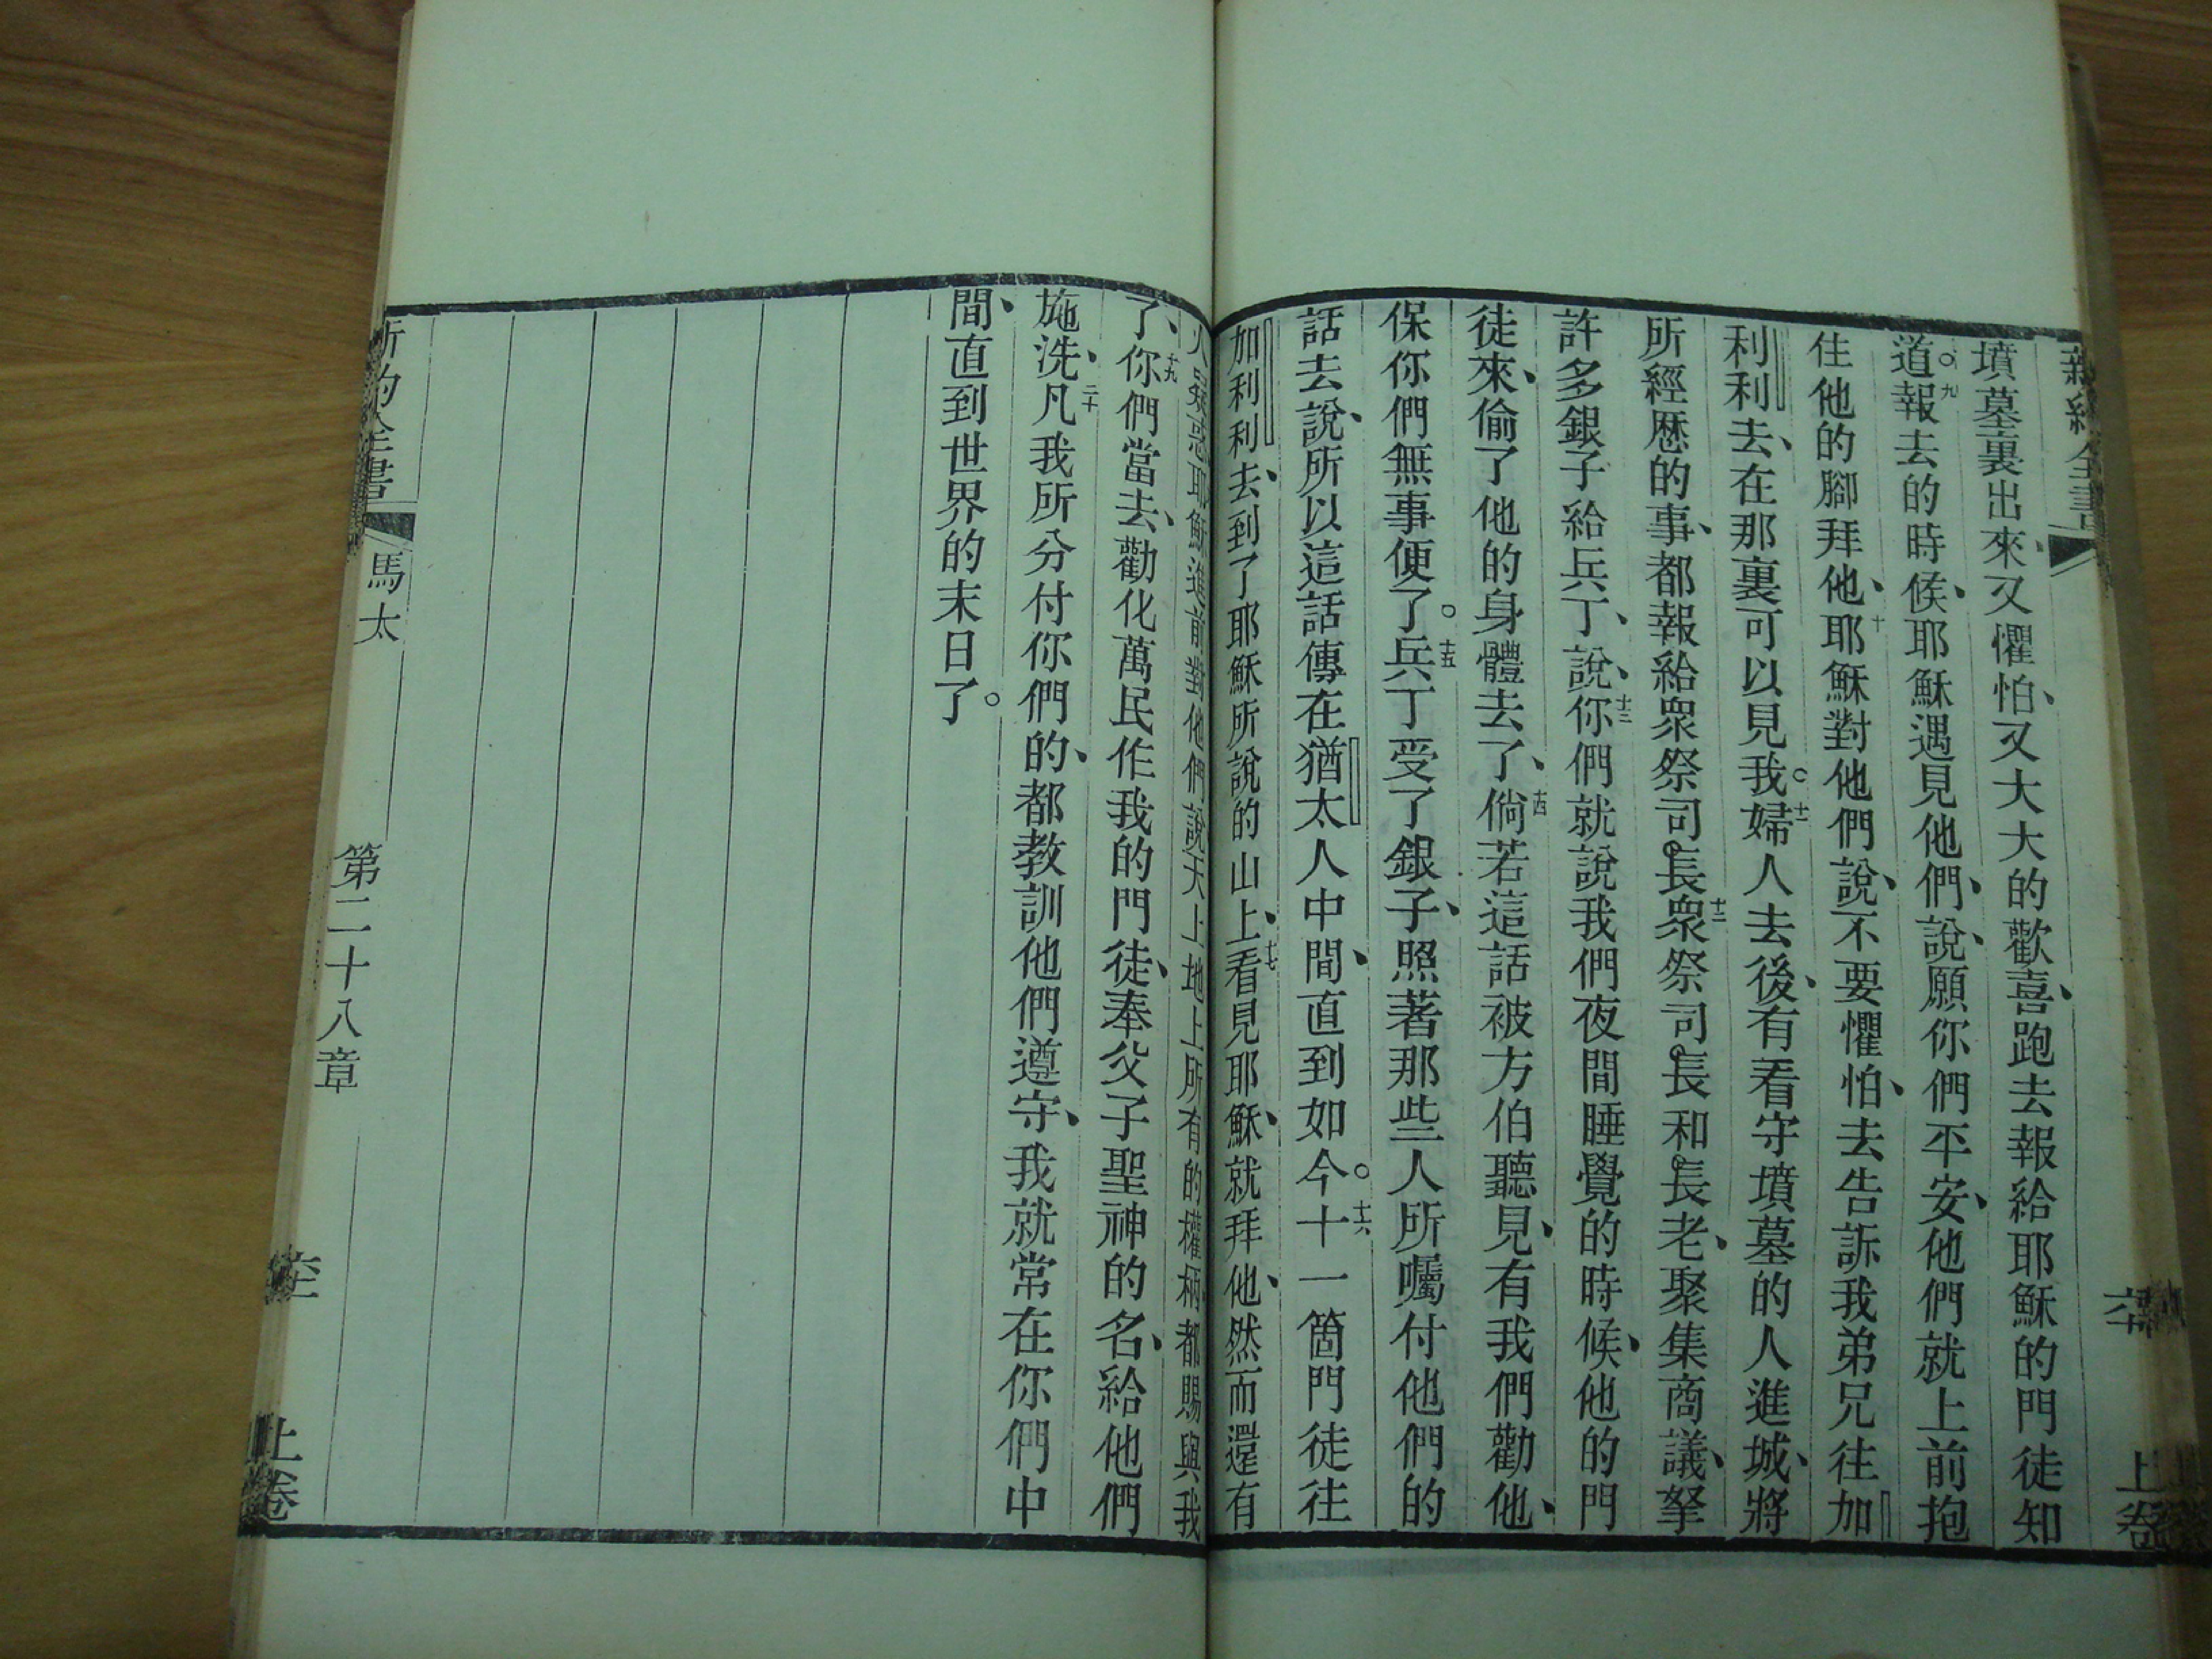 新約全書
上卷
墳墓裏出來、又懼怕、又大大的歡喜、跑去報給耶穌的門徒知
道。九報去的時候、耶穌遇見他們、說、願你們平安、他們就上前抱
住他的腳拜他、十耶穌對他們說、不要懼怕、去告訴我弟兄往加
利利去、在那裏可以見我。十一婦人去後、有看守墳墓的人進城、將
所經歷的事、都報給衆祭司長十二衆祭司長和長老、聚集商議、拏
許多銀子給兵丁、說、十三你們就說我們夜間睡覺的時候、他的門
徒來、偷了他的身體去了、十四倘若這話被方伯聽見、有我們勸他、
保你們無事便了。十五兵丁受了銀子、照著那些人所囑付他們的
話去說、所以這話傳在猶太人中間、直到如今。十六十一箇門徒往
加利利去、到了耶穌所說的山上、十七看見耶穌、就拜他、然而還有
人疑惑耶穌進前對他們說天上地上所有的權柄都賜與我
了、十九你們當去、勸化萬民作我的門徒、奉父子聖神的名、給他們
施洗、二十凡我所分付你們的、都教訓他們遵守、我就常在你們中
間、直到世界的末日了。
新約全書
馬太
第二十八章
上卷